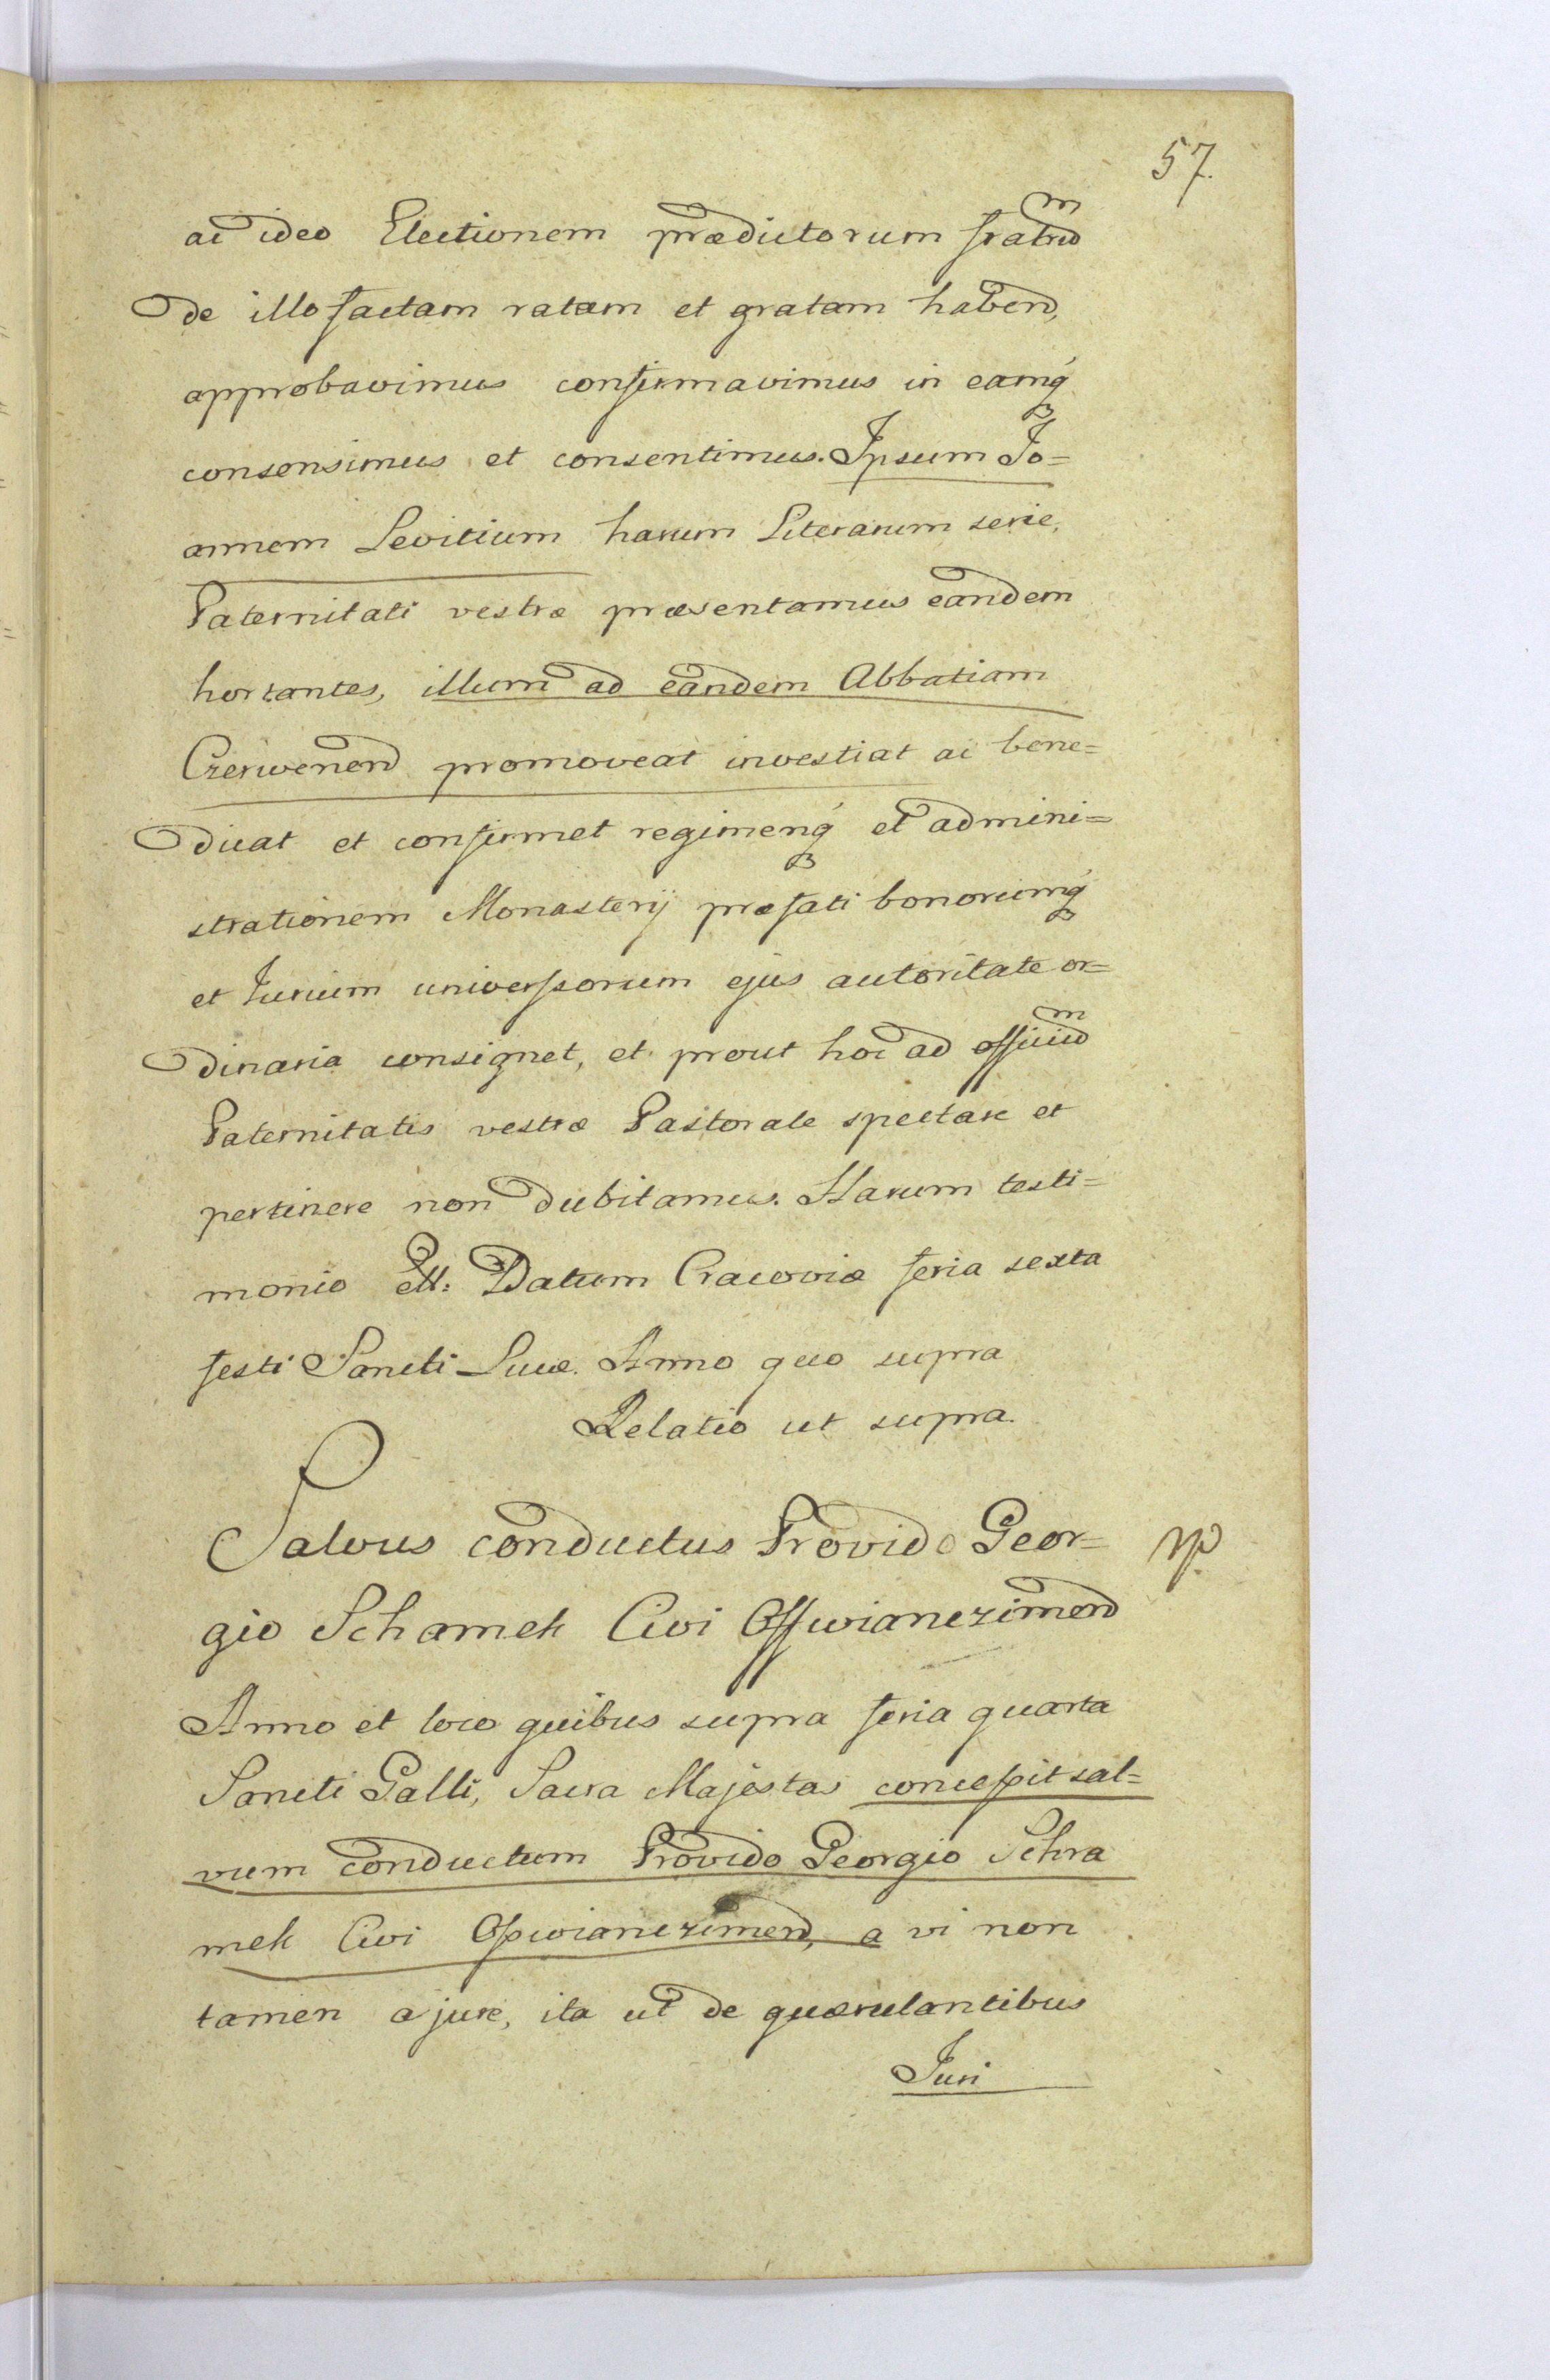 57.
ac ideo Electionem prædictorum fratru͞m
de illo factam ratam et gratam habend,
approbavimus confirmavimus in eamq́
consensimus et consentimus. Ipsum Jo=
annem Levitium harum Literarum serie,
Paternitati vestræ præsentamus eandem
hortantes, illum ad eandem Abbatiam
Czerwenend promoveat investiat ac bene=
dicat et confirmet regimenq́ et admini=
strationem Monasterij præfati bonorumq́
et Jurium universorum ejus autoritate or=
dinaria consignet, et prout hoc ad officiu͞m
Paternitatis vestræ Pastorale spectare et
pertinere non dubitamus. Harum testi=
monio ett: Datum Cracoviæ feria sexta
festi Sancti Lucæ. Anno quo supra
Relatio ut supra.
Salvus conductus Provido Geor=
gio Schamek Civi Osswianczimend
Anno et loco quibus supra feria quarta
Sancti Galli, Sacra Majestas concessit sal=
vum conductum Provido Georgio Schra
mek Civi Oswianczimend, a vi non
tamen a jure, ita ut de quærulantibus
Juri